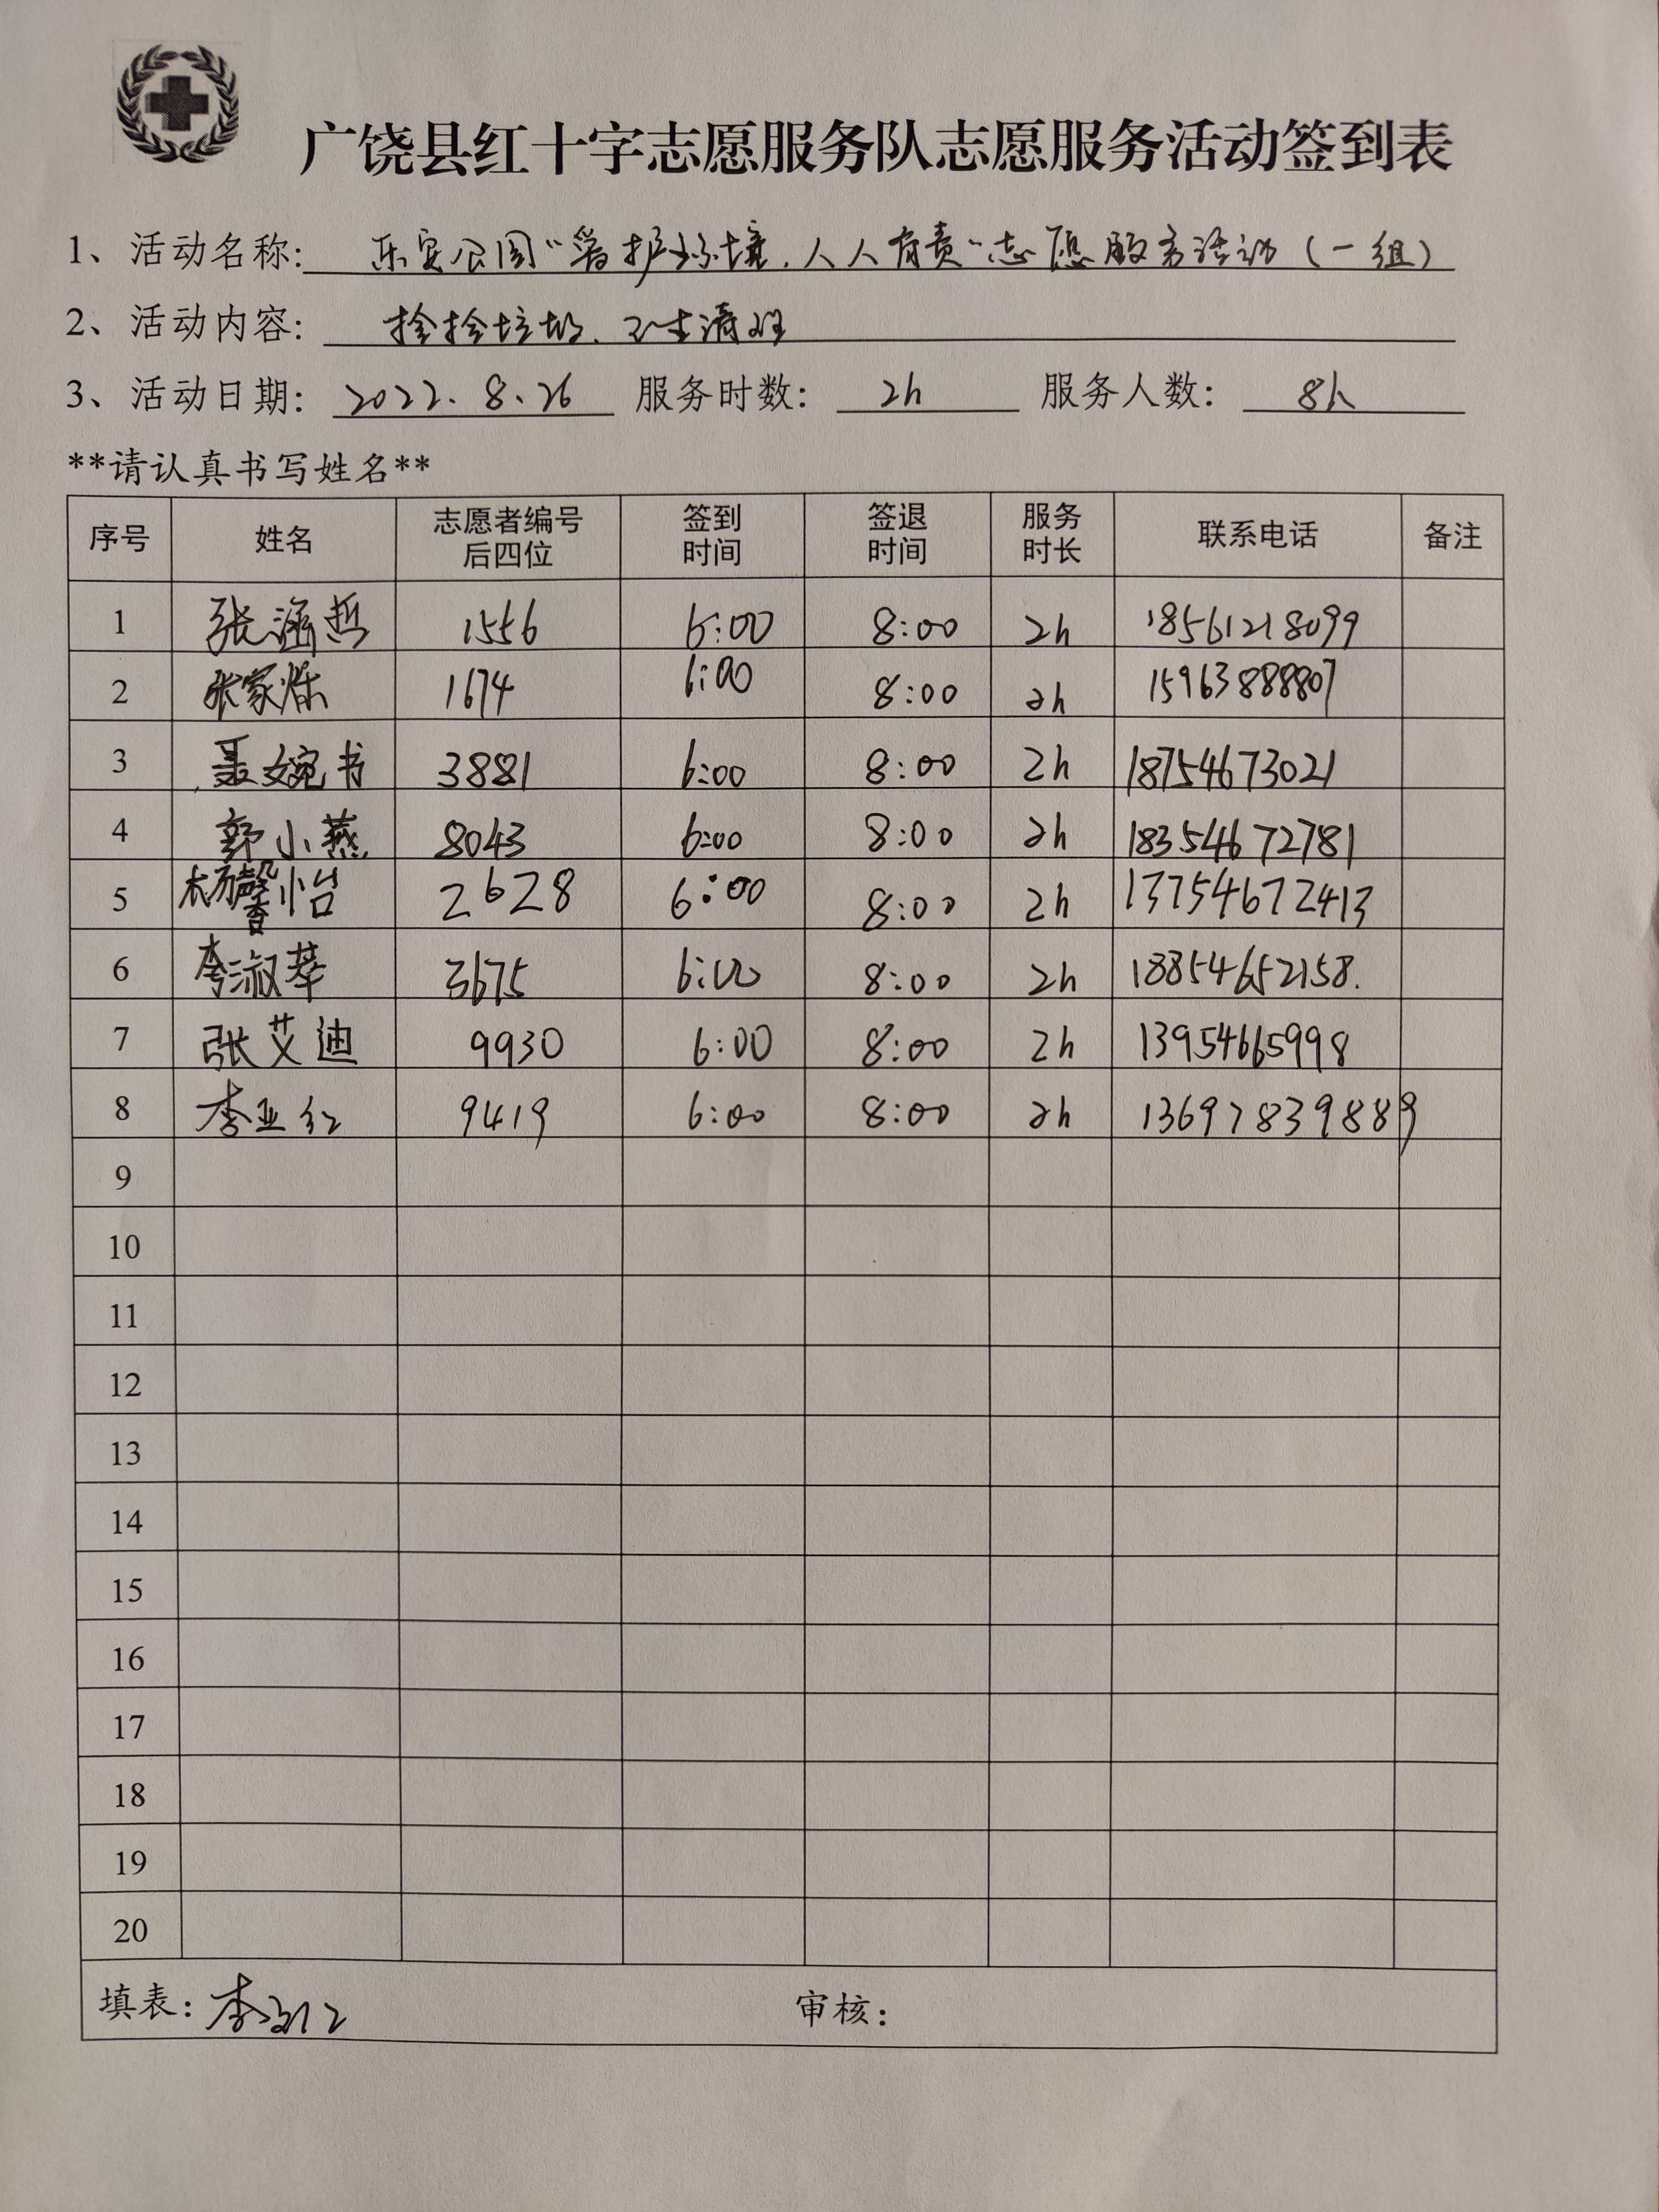 广饶县红十字志愿服务队志愿服务活动签到表
1、活动名称: 乐安公园“爱护环境,人人有责”志愿服务活动(一组)
2、活动内容: 捡拾垃圾、卫生清理
3、活动日期: 2022.8.26 服务时数: 2h 服务人数: 8人
**请认真书写姓名**
序号 姓名 志愿者编号后四位 签到时间 签退时间 服务时长 联系电话 备注
1 张涵哲 1556 6:00 8:00 2h 18561218099
2 张家烁 1674 6:00 8:00 2h 15963888807
3 聂婉书 3881 6:00 8:00 2h 18754673021
4 郭小燕 8043 6:00 8:00 2h 18354672781
5 杨馨怡 2628 6:00 8:00 2h 13754672413
6 李淑苹 3675 6:00 8:00 2h 18854652158.
7 张艾迪 9930 6:00 8:00 2h 13954665998
8 李亚红 9419 6:00 8:00 2h 13697839889
9
10
11
12
13
14
15
16
17
18
19
20
填表: 李亚红 审核: